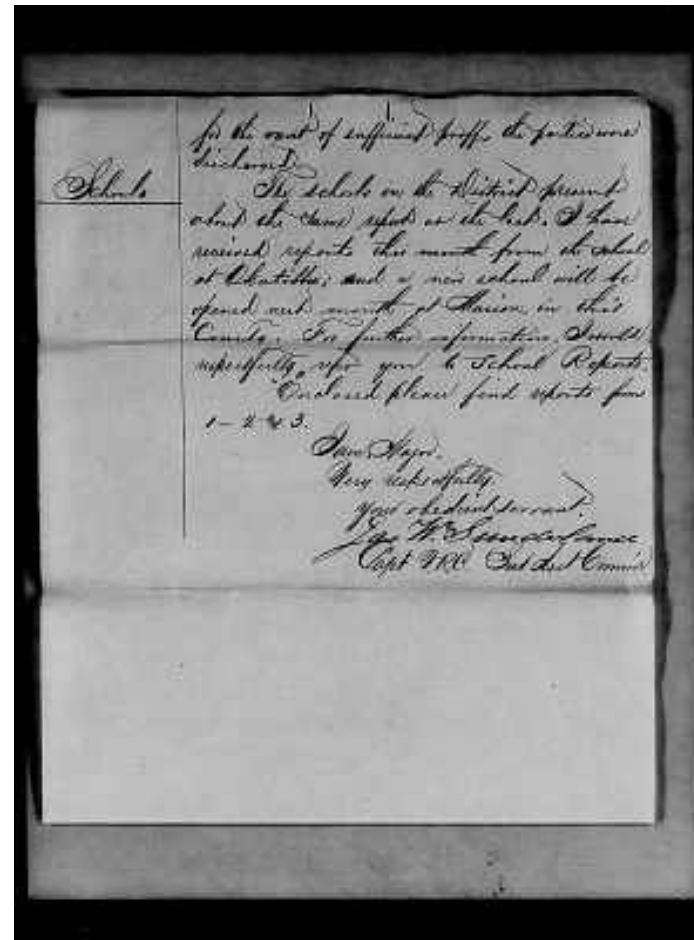 for the want of sufficient proff, the parties were
discharged.
Schools
The schools in the District present
about the same report as the last. I have
received reports this month from the school
at Okatibba; and a new school will be
opened next month at Marion, in this
County. For further information, I would
respectfully refer you to School Reports.
Enclosed please find reports from
1 - 2 & 3.
I am, Major.
Very respectfully
your obedient servant.
Jas W. Sunderland
Capt VRC Sub Asst Commis